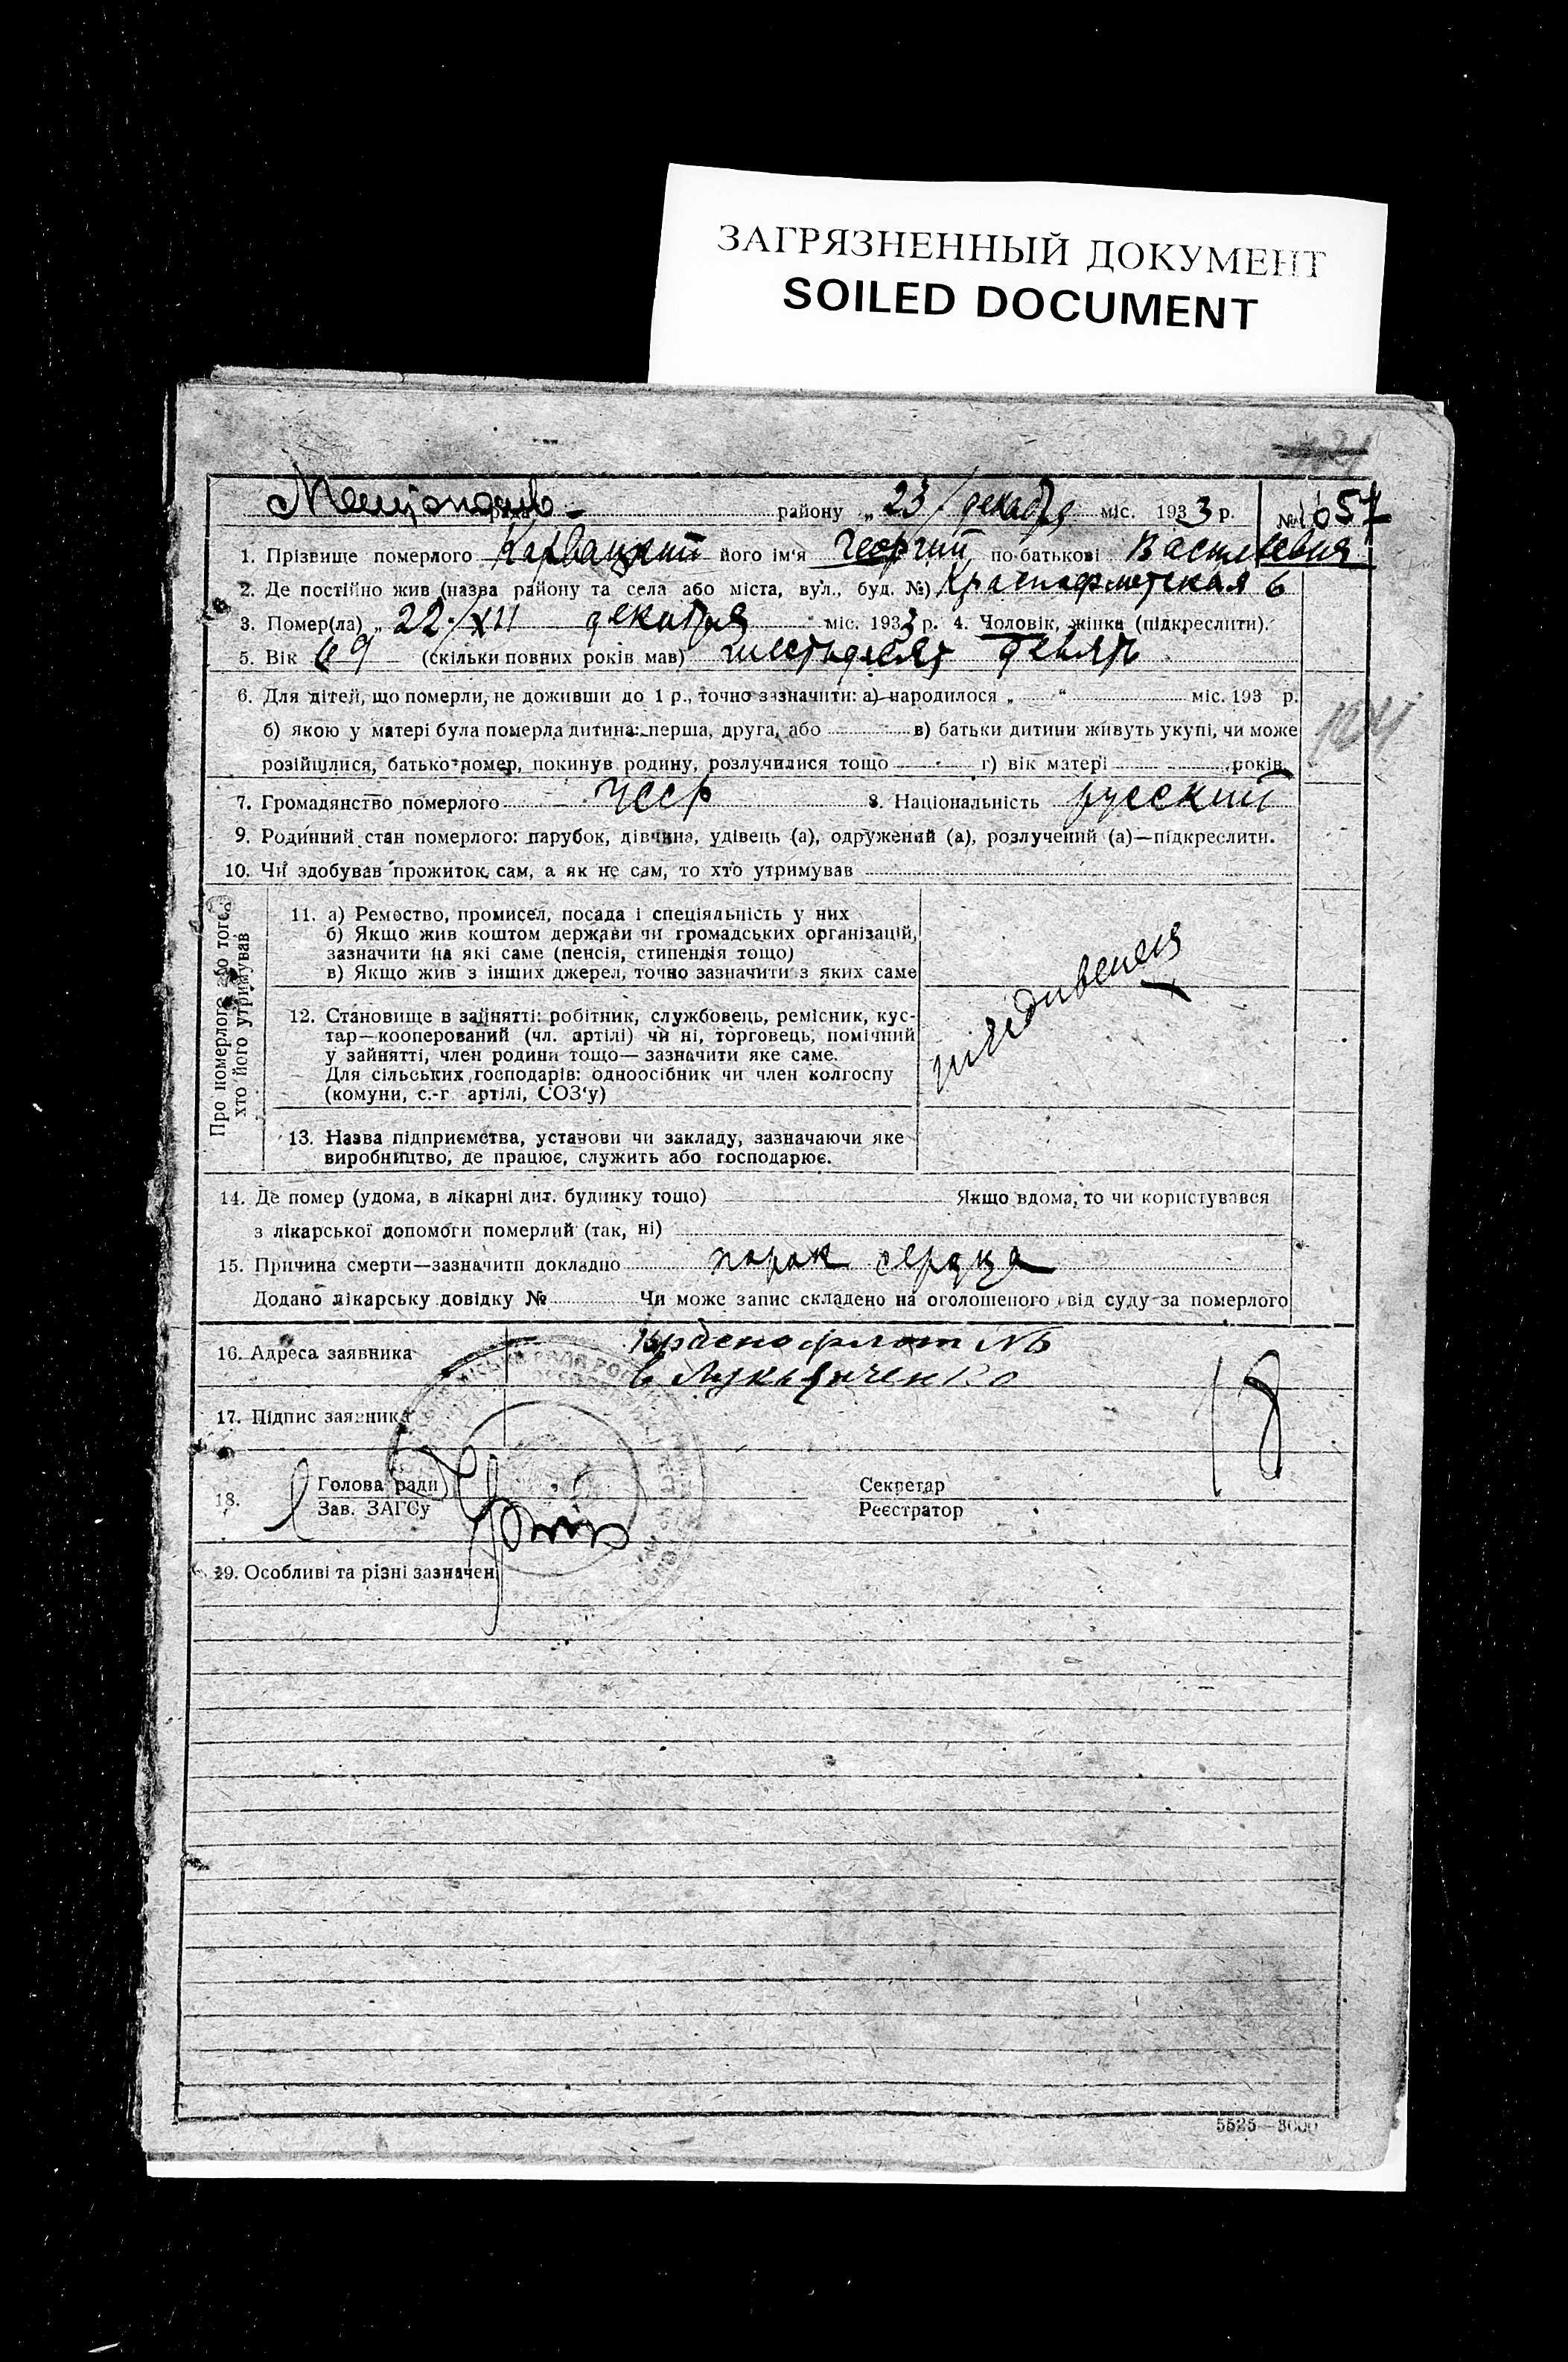 ЗАГРЯЗНЕННЫЙ ДОКУМЕНТ
SOILED DOCUMENT
району „ 23 / декабря міс. 1933 р. № 1657
1. Прізвище померлого Карвацкий його ім'я Георгий по-батькові Васильевич
2. Де постійно жив (назва району та села або міста, вул., буд. №) Краснофлотская 6
3. Помер(ла) „ 22/XII декабря міс. 1933 р. 4. Чоловік, жінка (підкреслити).
5. Вік 69 (скільки повних років мав) шестьдесят девять
6. Для дітей, що померли, не доживши до 1 р., точно зазначити: а) народилося „ “ міс. 193 р.
б) якою у матері була померла дитина: перша, друга, або в) батьки дитини живуть укупі, чи може
розійшлися, батько помер, покинув родину, розлучилися тощо г) вік матері років
7. Громадянство померлого УССР 8. Національність русский
9. Родинний стан померлого: парубок, дівчина, удівець (а), одружений (а), розлучений (а)—підкреслити.
10. Чи здобував прожиток сам, а як не сам, то хто утримував
Про померлого або того,
хто його утримував
11. а) Ремество, промисел, посада і спеціяльність у них
б) Якщо жив коштом держави чи громадських організацій,
зазначити на які саме (пенсія, стипендія тощо)
в) Якщо жив з інших джерел, точно зазначити з яких саме
иждивенец
12. Становище в занятті: робітник, службовець, ремісник, кус-
тар—кооперований (чл. артілі) чи ні, торговець, помічний
у зайнятті, член родини тощо— зазначити яке саме.
Для сільських господарів: одноосібник чи член колгоспу
(комуни, с.-г артілі, СОЗ'у)
13. Назва підприємства, установи чи закладу, зазначаючи яке
виробництво, де працює, служить або господарює.
14. Де помер (удома, в лікарні дит. будинку тощо) Якщо вдома, то чи користувався
з лікарської допомоги померлий (так, ні)
15. Причина смерти—зазначити докладно порок сердца
Додано лікарську довідку № Чи може запис складено на оголошеного від суду за померлого
16. Адреса заявника Краснофлот №6
Лукьянченко
17. Підпис заявника
18
18. Голова ради Секретар
Зав. ЗАГСу Реєстратор
19. Особливі та різні зазначен
5525—3000